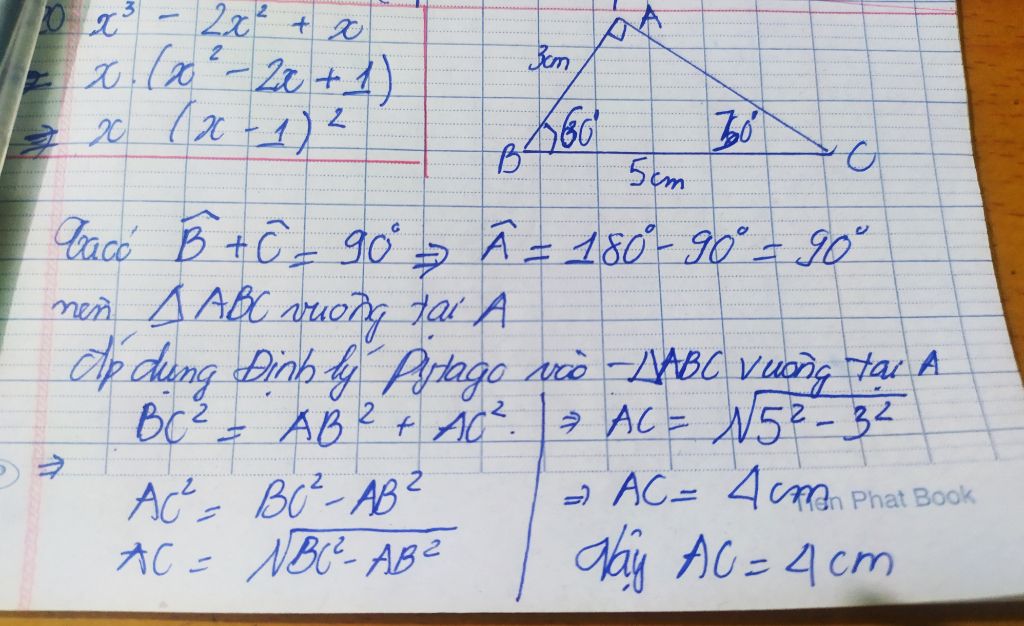 x³ - 2x² + x
= x.(x² - 2x + 1)
⇒ x (x - 1)²
A
3cm
B 60° 30° C
5cm
Ta có B̂ + Ĉ = 90° ⇒ Â = 180° - 90° = 90°
nên ΔABC vuông tại A
Áp dụng Định lý Pytago vào ΔABC vuông tại A
BC² = AB² + AC².
⇒
AC² = BC² - AB²
AC = √BC² - AB²
⇒ AC = √5² - 3²
⇒ AC = 4cm
Vậy AC = 4cm
Tien Phat Book